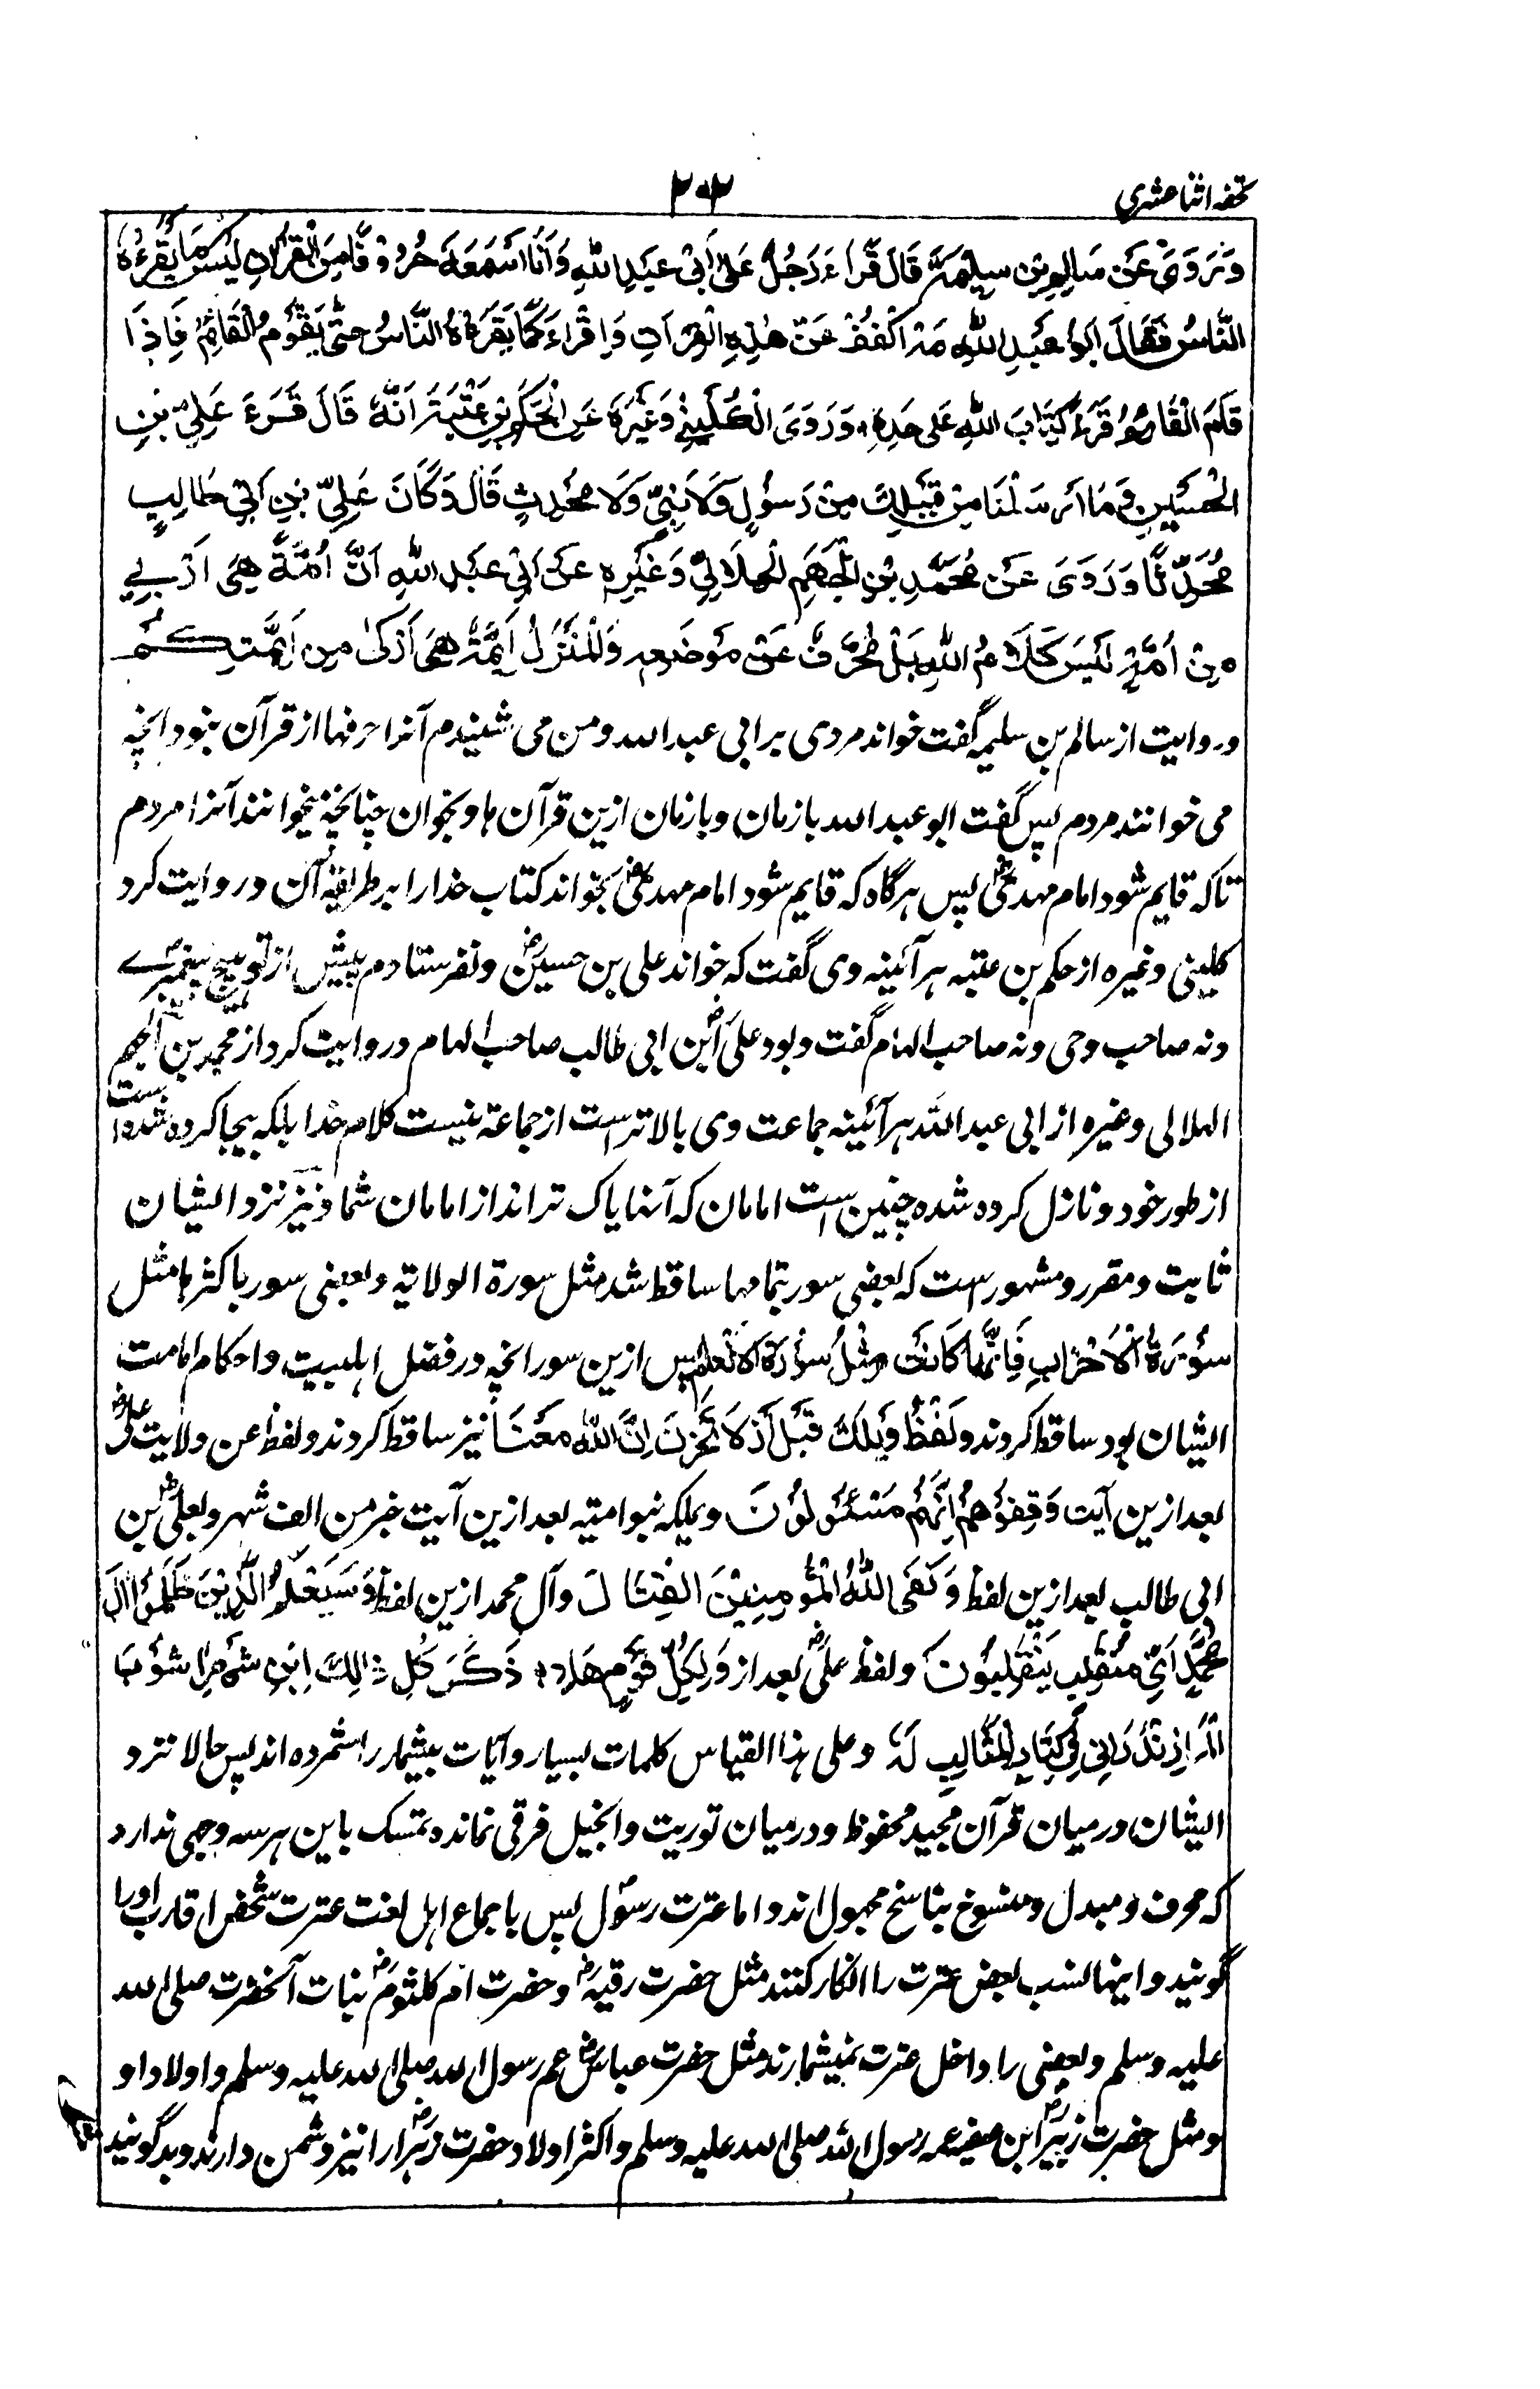 تحفہ اثنا عشری
۲۰۲
وَرَوَىٰ عَنْ سَالِمِ بْنِ سِلِيْمَةَ قَالَ قَرَاءَ رَجُلٌ عَلىٰ اَبِىْ عَبْدِ اللّٰهِ وَاَنَا اَسْمَعُهٗ حُرُوْفًا مِنَ الْقُرْاٰنِ لَيْسَ كَمَا يَقْرَءُهٗ
النَّاسُ فَقَالَ اَبُوْ عَبْدِ اللّٰهِ مَهْ اُكْفُفْ عَنْ هٰذِهِ الْقِرْاٰتِ وَاِقْرَاءْ كَمَا يَقْرَءُهٗ النَّاسُ حَتّٰى يَقُوْمُ الْقَائِمُ فَاِذَا
قَامَ الْقَائِمُ قَرَءَ كِتَابَ اللّٰهِ عَلىٰ حَدِّهٖ وَرَوَى الْكُلَيْنِىْ وَغَيْرُهٗ عَنِ الْحَكَمِ بْنِ عُتْبَةَ اَنَّهٗ قَالَ قَرَءَ عَلِىُّ بْنِ
الْحُسَيْنِ وَمَا اَرْسَلْنَا مِنْ قَبْلِكَ مِنْ رَسُوْلٍ وَلَا نَبِىٍّ وَلَا مُحَدَّثٍ قَالَ وَكَانَ عَلِىُّ بْنِ اَبِىْ طَالِبٍ
مُحَدَّثًا وَرَوَىٰ عَنْ مُحَمَّدِ بْنِ الْجَهْمِ الْهِلَالِىِّ وَغَيْرِهٖ عَنْ اَبِىْ عَبْدِ اللّٰهِ اَنَّ اُمَّةً هِىَ اَرْبىٰ
مِنْ اُمَّةٍ لَيْسَ كَلَامُ اللّٰهِ بَلْ مُحَرَّفٌ عَنْ مَوْضَعِهٖ وَالْمُنَزَّلُ اَئِمَّةٌ هِىَ اَزْكىٰ مِنْ اَئِمَّتِكُمْ
وروایت از سالم بن سلیمہ گفت خواند مردی بر ابی عبد اللہ و من می شنیدم آنرا حرفہا از قرآن نبود انچہ
می خوانند مردم پس گفت ابو عبد اللہ بازمان و بازمان ازین قرآن ہا و بخوان چنانچہ میخوانند آنرا مردم
تاکہ قایم شود امام مہدیؑ پس ہر گاہ کہ قایم شود امام مہدیؑ بخواند کتاب خدا را بر طریقہ آن و روایت کرد
کلینی و غیرہ از حکم بن عتبہ ہر آئینہ وی گفت کہ خواند علی بن حسینؓ و نفرستادم پیش از تو ہیچ پیغمبرے
و نہ صاحب وحی و نہ صاحب الہام گفت و بود علیؓ ابن ابی طالب صاحب الہام و روایت کرد از محمد بن الجہم
الہلالی و غیرہ از ابی عبد اللہ ہر آئینہ جماعت وی بالاتر است از جماعۃ نیست کلام خدا بلکہ بیجا کردہ شدہ است
از طور خود و نازل کردہ شدہ چنین است امامان کہ آنہا پاک تر اند از امامان شما و نیز نزد ایشان
ثابت و مقرر و مشہور است کہ بعضی سور بتمامہا ساقط شد مثل سورۃ الولایۃ و بعضی سور باکثرہا مثل
سُوْرَةُ الْاَحْزَابِ فَاِنَّهَا كَانَتْ مِثْلُ سُوْرَةِ الْاَنْعَامِ پس ازین سور انچہ در فضل اہلبیت و احکام امامت
ایشان بود ساقط کردند و لفظ وَيْلَكَ قَبْلَ لَا تَحْزَنْ اِنَّ اللّٰهَ مَعَنَا نیز ساقط کردند و لفظ عن ولایت علیؓ
بعد ازین آیت وَقِفُوْهُمْ اِنَّهُمْ مَسْئُوْلُوْنَ و یملکہ بنو امیہ بعد ازین آیت خیر من الف شہر و بعلیؓ بن
ابی طالب بعد ازین لفظ وَكَفَى اللّٰهُ الْمُؤْمِنِيْنَ الْقِتَالَ وآل محمد ازین لفظ وَسَيَعْلَمُ الَّذِيْنَ ظَلَمُوْا اٰلَ
مُحَمَّدٍ اَىَّ مُنْقَلَبٍ يَنْقَلِبُوْنَ و لفظ علیؓ بعد از وَلِكُلِّ قَوْمٍ هَادٍ ذَكَرَ كُلَّ ذٰلِكَ اِبْنِ شَهْرِ اٰشُوْبَ
الْمَازِنْدَرَانِى فِىْ كِتَابِ الْمَثَالِبِ لَهٗ و علی ہذا القیاس کلمات بسیار و آیات بیشمار را شمردہ اند پس حالا نزد
ایشان درمیان قرآن مجید محفوظ و درمیان توریت و انجیل فرقی نماند و تمسک باین ہر سہ وجہی ندارد
کہ محرف و مبدل و منسوخ بناسخ مجہول اند و اما عترت رسولؐ پس باجماع اہل لغت عترت شخص اقارب او را
گویند و اینہا نسب بعض عترت را انکار کنند مثل حضرت رقیہؓ و حضرت ام کلثومؓ بنات آنحضرت صلی اللہ
علیہ وسلم و بعضی را داخل عترت نمیشمارند مثل حضرت عباسؓ عم رسول اللہ صلی اللہ علیہ وسلم و اولاد او
و مثل حضرت زبیرؓ ابن صفیہ عمہ رسول اللہ صلی اللہ علیہ وسلم و اکثر اولاد حضرت زہراؓ را نیز دشمن دارند و بد گویند